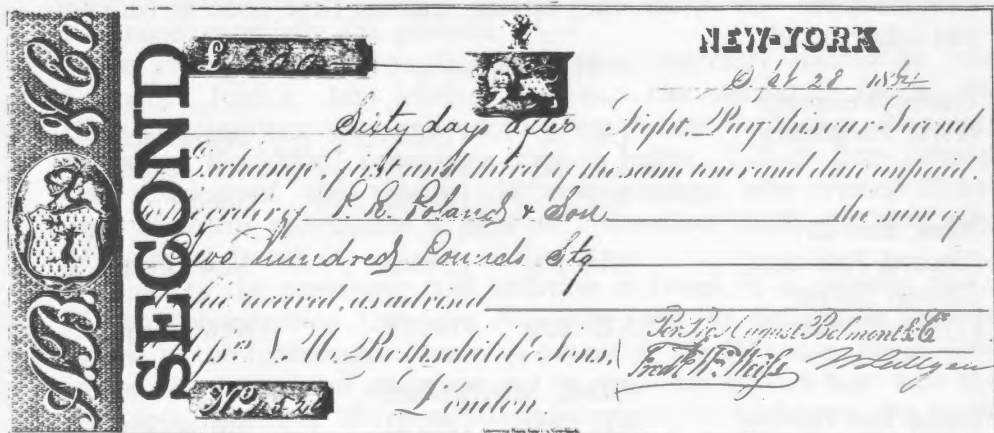 A.B. & Co.
SECOND
£ 200
NEW-YORK
28 18
Sixty days after Sight, Pay this our Second
Exchange, first and third of the same tenor and date unpaid.
to the order of P. R. Poland & Son the sum of
Two hundred Pounds Stg
received, as advised
N. M. Rothschild & Sons,
London.
Per Pro August Belmont & Co.
Fredk Wm
No